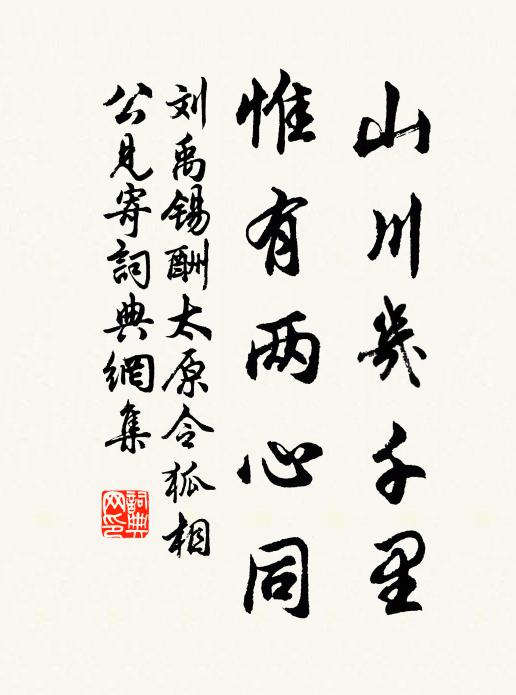 山川幾千里
惟有两心同
刘禹锡酬太原令狐相
公見寄詞典網集
詞典
网印